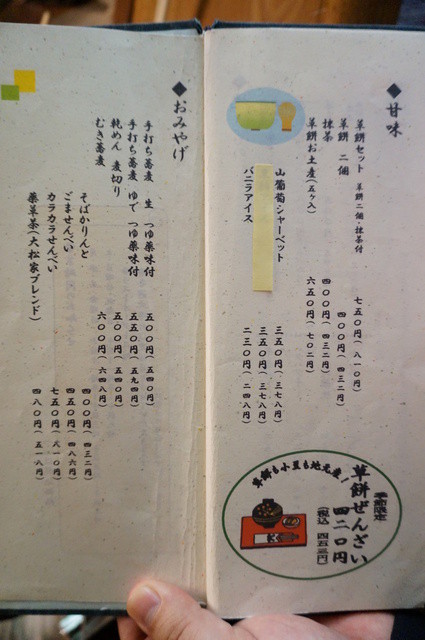 ◆甘味
草餅セット 草餅二個・抹茶付 七五〇円(八一〇円)
草餅 二個 四〇〇円(四三二円)
抹茶 四〇〇円(四三二円)
草餅お土産(五ヶ入) 六五〇円(七〇二円)
山葡萄シャーベット 三五〇円(三七八円)
三五〇円(三七八円)
バニラアイス 二三〇円(二四八円)
季節限定
草餅ぜんざい
四二〇円
(税込 四五三円)
草餅も小豆も地元産！
◆おみやげ
手打ち蕎麦 生 つゆ薬味付 五〇〇円(五四〇円)
手打ち蕎麦 ゆで つゆ薬味付 五五〇円(五九四円)
乾めん 麦切り 五〇〇円(五四〇円)
むき蕎麦 六〇〇円(六四八円)
そばかりんと 四〇〇円(四三二円)
ごませんべい 四五〇円(四八六円)
カラカラせんべい 七五〇円(八一〇円)
薬草茶(大松家ブレンド) 四八〇円(五一八円)